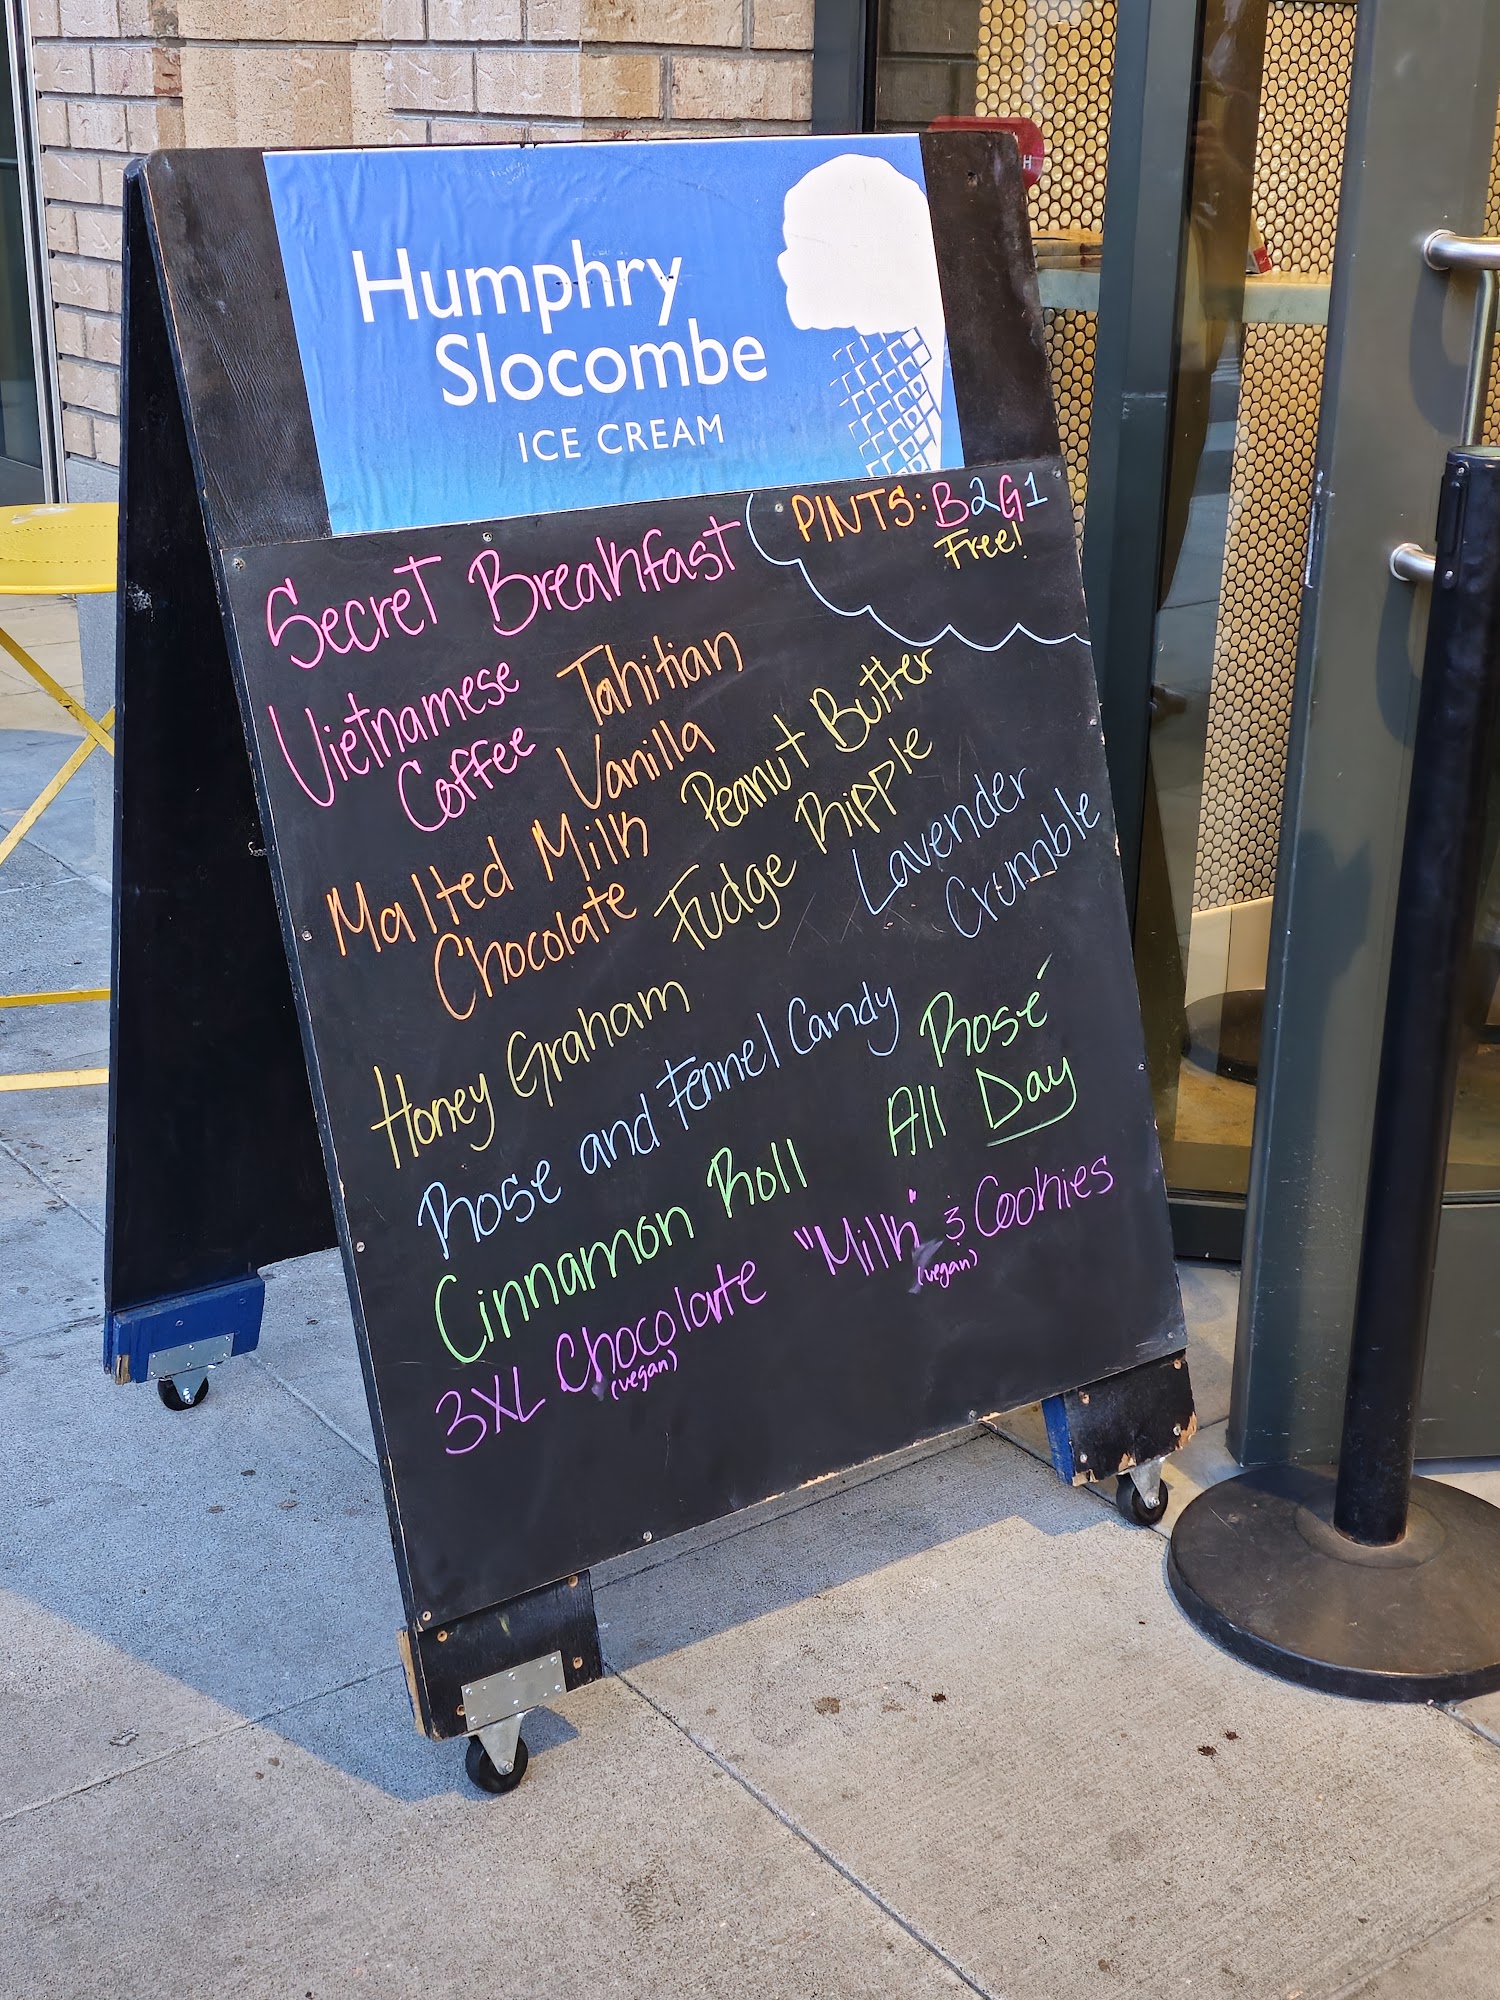 Humphry
Slocombe
ICE CREAM
PINTS: B2G1
Free!
Secret Breakfast
Vietnamese
Coffee
Tahitian
Vanilla
Malted Milk
Chocolate
Peanut Butter
Fudge Ripple
Lavender
Crumble
Honey Graham
Rose and Fennel Candy
Rosé
All Day
Cinnamon Roll
3XL Chocolate
(vegan)
"Milk" & Cookies
(vegan)
H